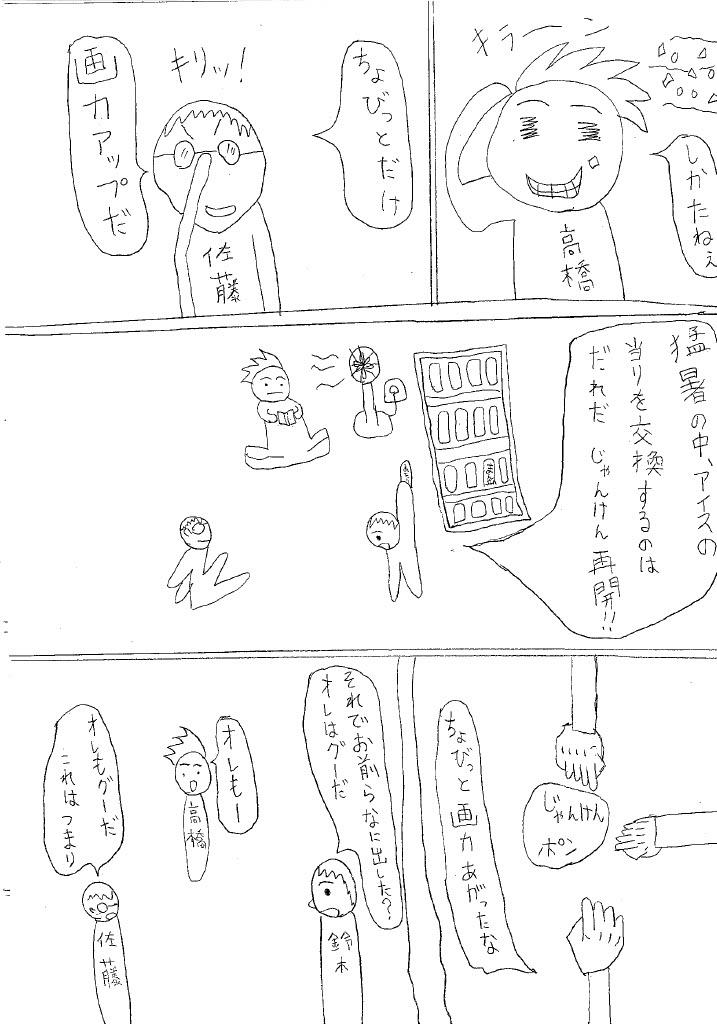 キラーン
しかたねぇ
高橋
ちょびっとだけ
キリッ!
画力アップだ
佐藤
猛暑の中、アイスの
当りを交換するのは
だれだ じゃんけん再開!!
じゃんけん
ポン
ちょびっと画力あがったな
それでお前らなに出した?
オレはグーだ
鈴木
オレもー
高橋
オレもグーだ
これはつまり
佐藤